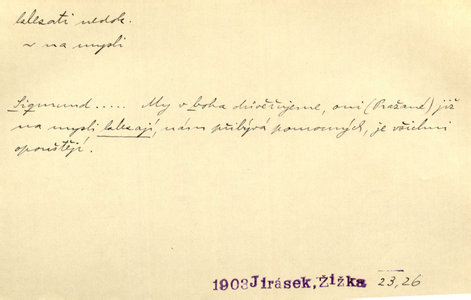 klesati nedok.
~ na mysli
Sigmund..... My v boha důvěřujeme, oni (Pražané) již
na mysli klesají, nám přibývá pomocných, je všichni
opouštějí.
1903 Jirásek, Žižka 23,26